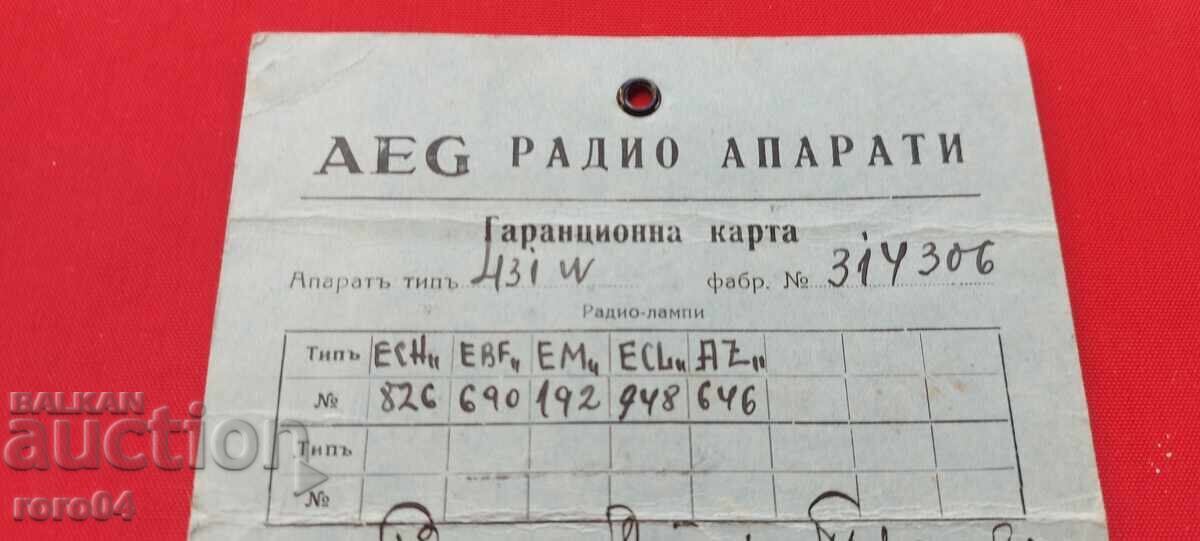 AEG РАДИО АПАРАТИ
Гаранционна карта
Апаратъ типъ 431 W фабр. № 314306
Радио-лампи
Типъ ECH11 EBF11 EM11 ECL11 AZ11
№ 826 690 192 948 646
Типъ
№
BALKAN
auction
roro04